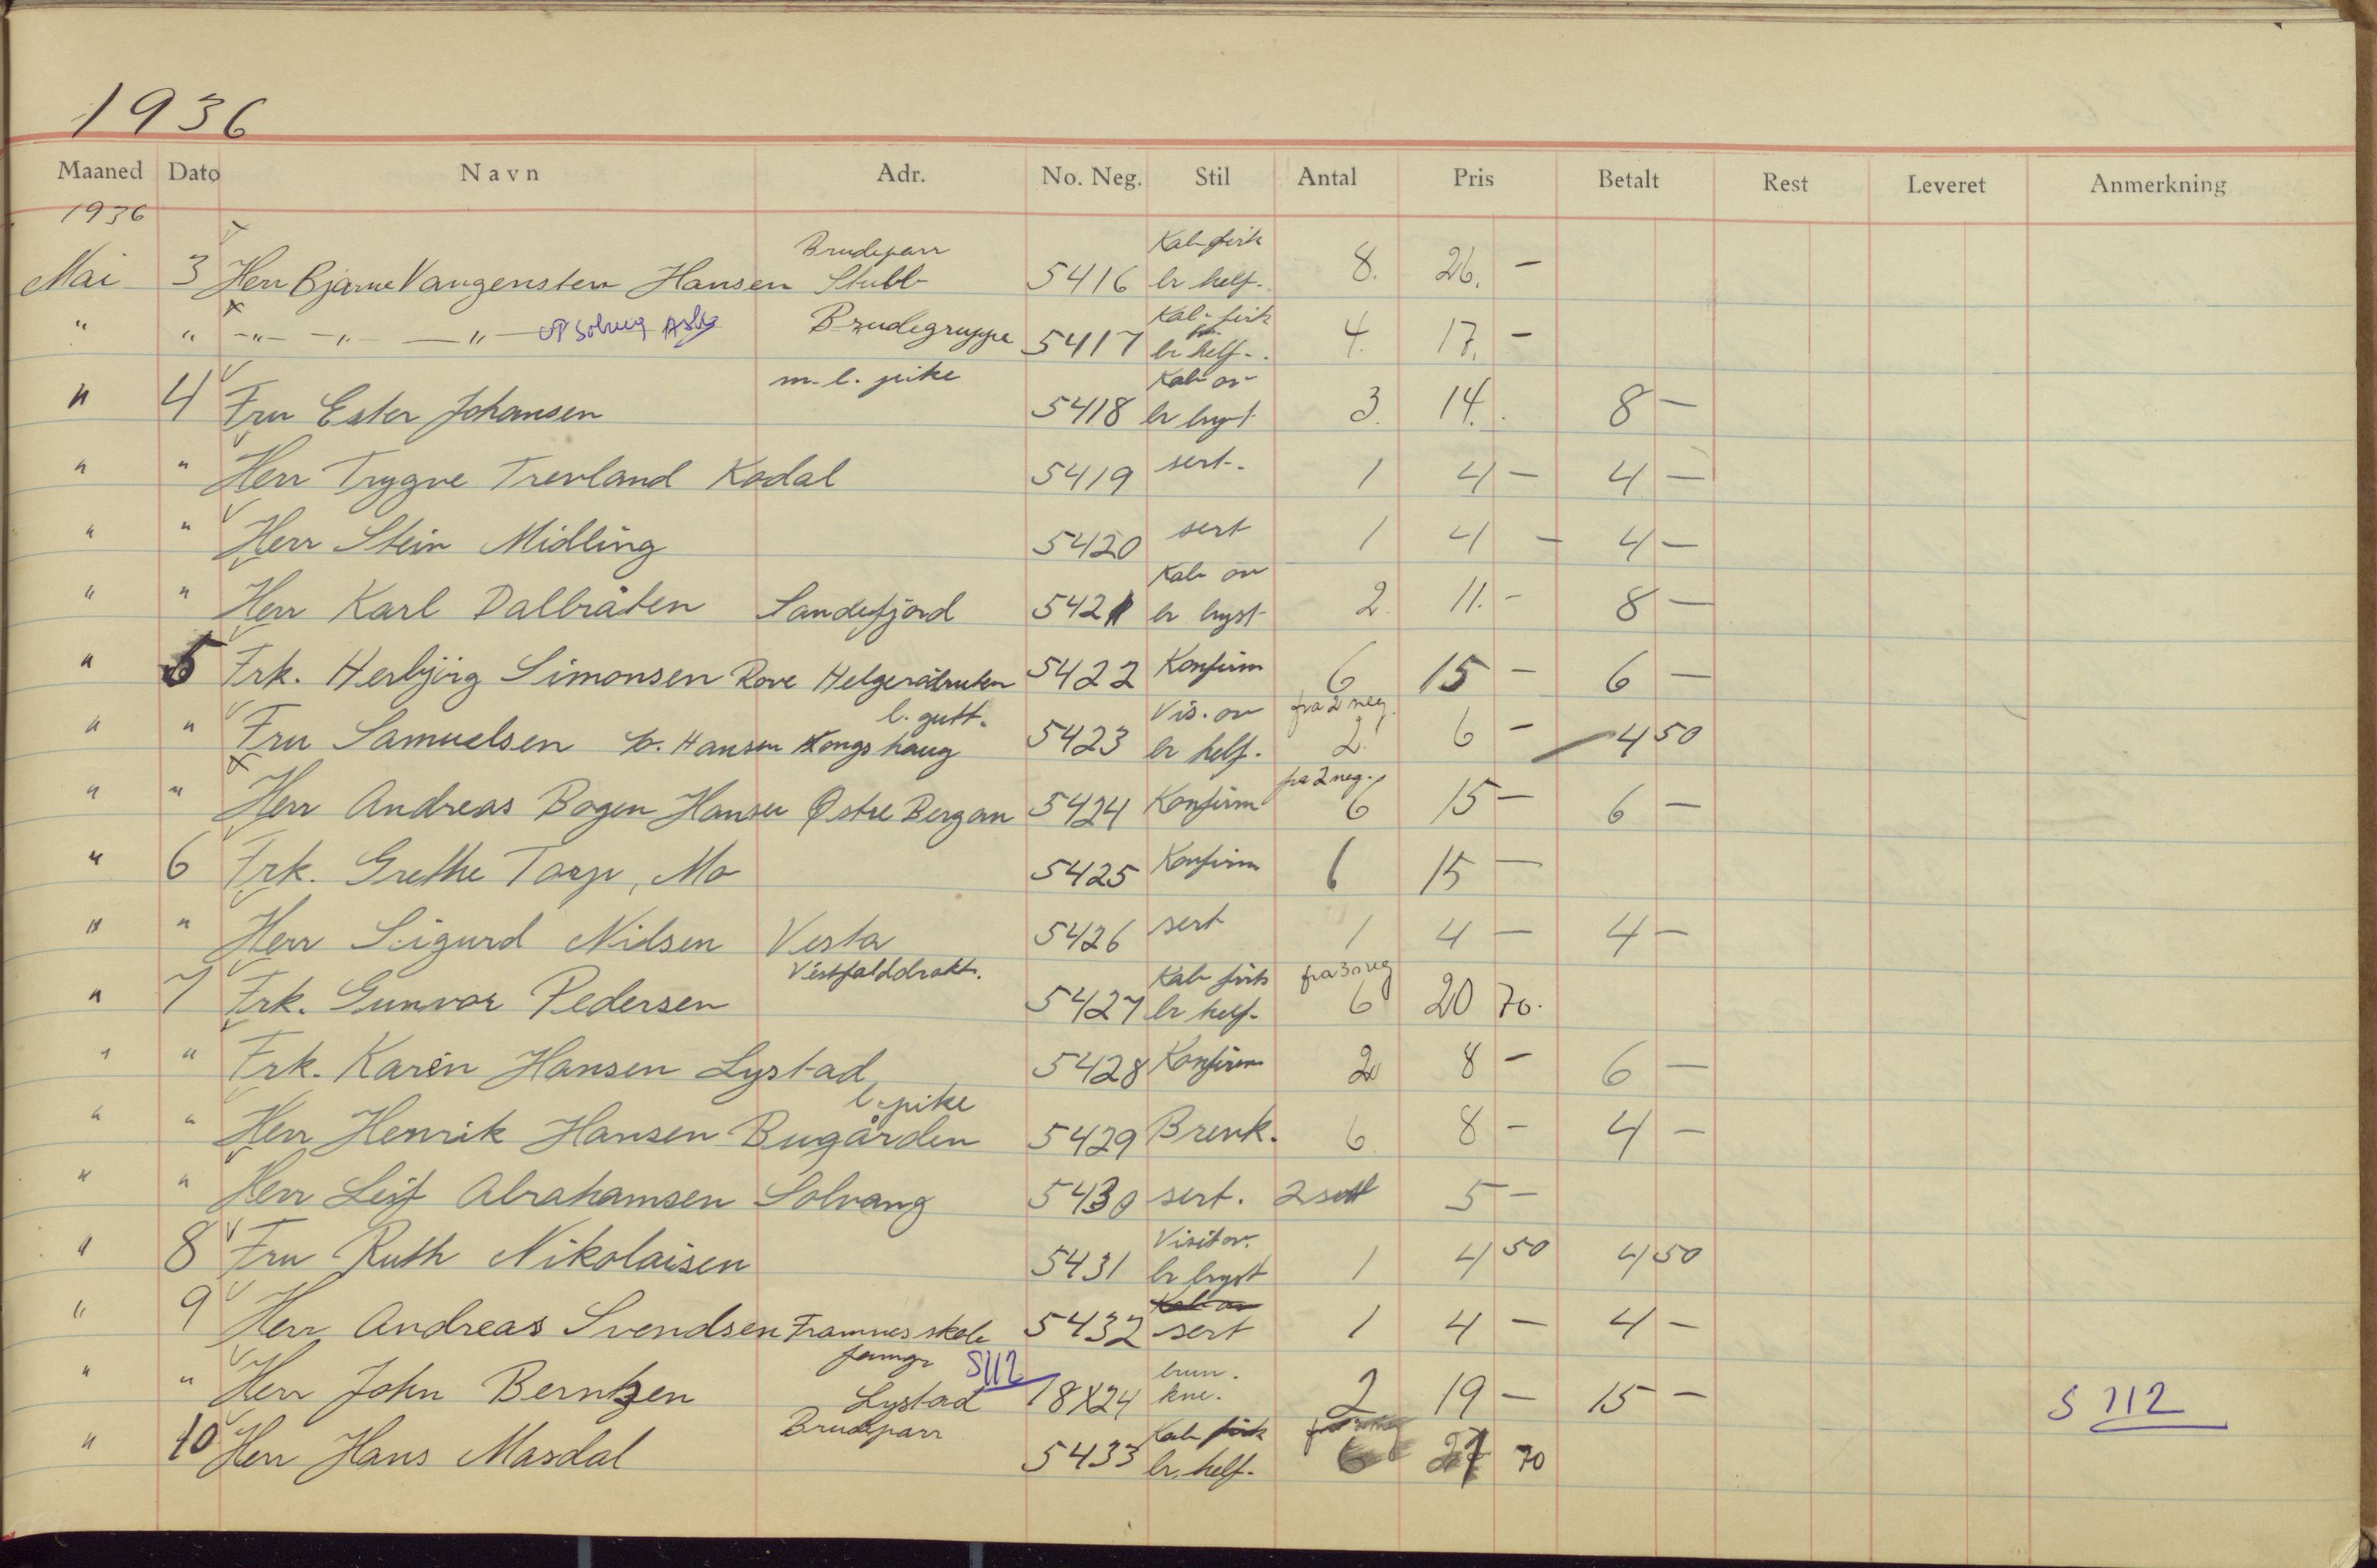 1936
Maaned Dato Navn Adr. No. Neg. Stil Antal Pris Betalt Rest Leveret Anmerkning
1936
Brudeparr Kab firk
Mai 3 Herr Bjarne Vangensten Hansen Stubb 5416 br helf. 8. 26. —
Kab firk
" " —"— —"— —"— Solveig Asly Brudegruppe 5417 br helf. 4. 17. —
m. l. pike Kab ov
" 4 Fru Ester Johansen 5418 br bryst 3. 14. 8 —
" " Herr Trygve Trevland Kodal 5419 sert. 1 4 — 4 —
" " Herr Stein Midling 5420 sert 1 4 — 4 —
Kab ov
" " Herr Karl Dalbråten Sandefjord 5421 br bryst 2. 11. — 8 —
" 5 Frk. Herbjörg Simonsen Rove Helgeråbruken 5422 Konfirm 6 15 — 6 —
l. gutt. Vis. ov fra 2 neg.
" " Fru Samuelsen b. Hansen Kongshaug 5423 br helf. 2. 6 — 4 50
fra 2 neg.
" " Herr Andreas Bogen Hansen Østre Bergan 5424 Konfirm 6 15 — 6 —
" 6 Frk. Grethe Torp, Mo 5425 Konfirm 6 15 —
" " Herr Sigurd Nilsen Vesta 5426 sert 1 4 — 4 —
Vestfolddrakt. Kab firk fra 3 neg
" 7 Frk. Gunvor Pedersen 5427 br helf. 6 20 70.
" " Frk. Karin Hansen Lystad 5428 Konfirm 2 8 — 6 —
l. pike
" " Herr Henrik Hansen Bugården 5429 Brevk. 6 8 — 4 —
" " Herr Leif Abrahamsen Solvang 5430 sert. 2 sett 5 —
Visit ov.
" 8 Fru Ruth Nikolaisen 5431 br bryst 1 4 50 4 50
Kab ov
" 9 Herr Andreas Svendsen Framnes skole 5432 sert 1 4 — 4 —
famgr S112 brun.
" " Herr John Berntzen Lystad 18X24 kne. 2 19 — 15 — S 112
Brudeparr Kab firk
" 10 Herr Hans Masdal 5433 br. helf. 6 70